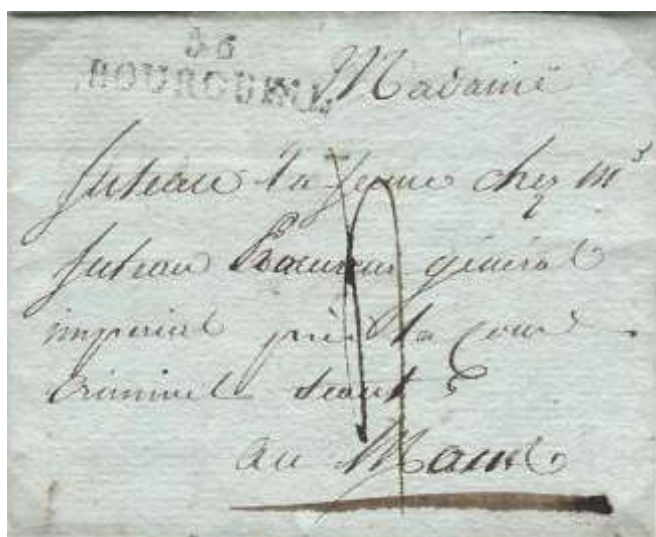 36
BOURGUEIL
Madame
Juteau la jeune chez mr
Juteau Procureur général
imperial près la Cour
Criminel Seant
au Mans